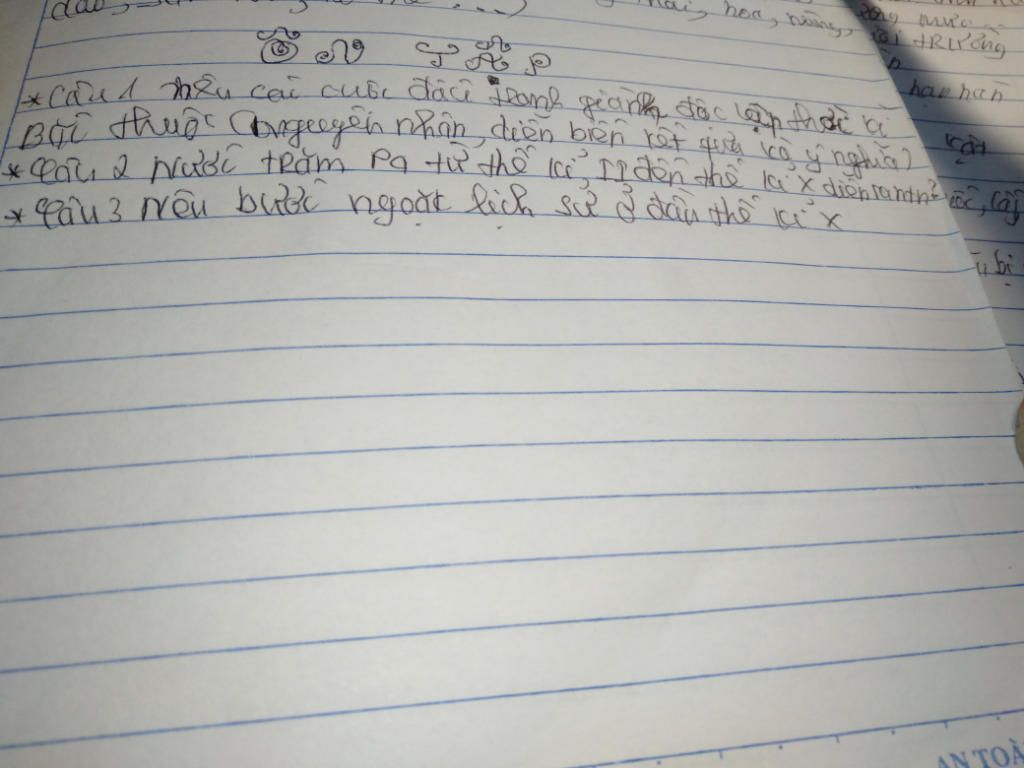 mai, hoa, nắng,
trường
hạn hán
Ôn Tập
* Câu 1 nêu các cuộc đấu tranh giành độc lập thời kì
Bắc thuộc (nguyên nhân, diễn biến kết quả và ý nghĩa)
* Câu 2 Nước Trăm Pa từ thế kỉ II đến thế kỉ X diễn ra
* Câu 3 Nêu bước ngoặt lịch sử ở đầu thế kỉ X
bị
AN TOÀ